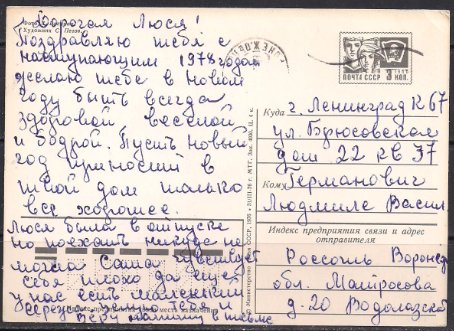 Дорогая Люся!
Поздравляю тебя с
наступающим 1977 годом
желаю тебе в новом
году быть всегда
здоровой веселой
и бодрой. Пусть новый
год приносит в
твой дом только
все хорошее.
Люся была в отпуске
но поехать никуда не
могла Саша чувствует
себя плохо да еще
у нас есть маленький
в письме
ПОЧТА СССР
Куда г. Ленинград К 67
ул. Брюсовская
дом 22 кв 37
Кому Германович
Людмиле Васил
Индекс предприятия связи и адрес
отправителя
Россошь Воронеж
обл. Матросова
д-20 Водолазской